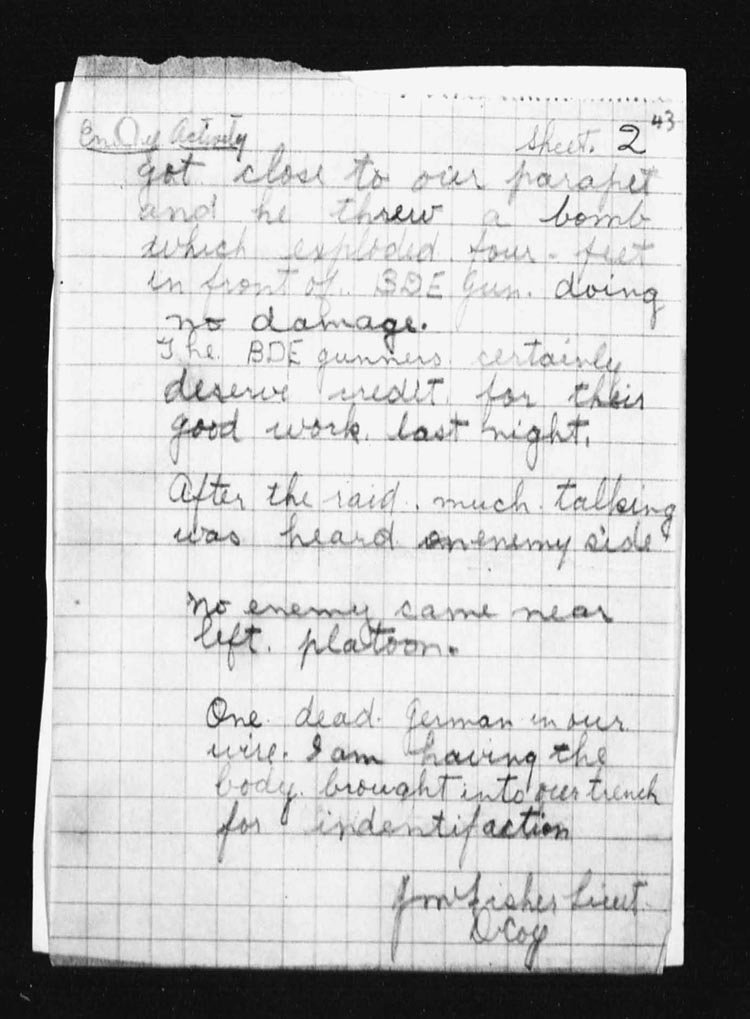 43
Enemy Activity Sheet. 2
got close to our parapet
and he threw a bomb
which exploded four - feet
in front of BDE Gun. doing
no damage.
The BDE gunners certainly
deserve credit for their
good work last night.
After the raid . much talking
was heard on enemy side
No enemy came near
left platoon.
One dead German in our
wire. I am having the
body brought into our trench
for indentifaction
J M Fisher Lieut
D Coy